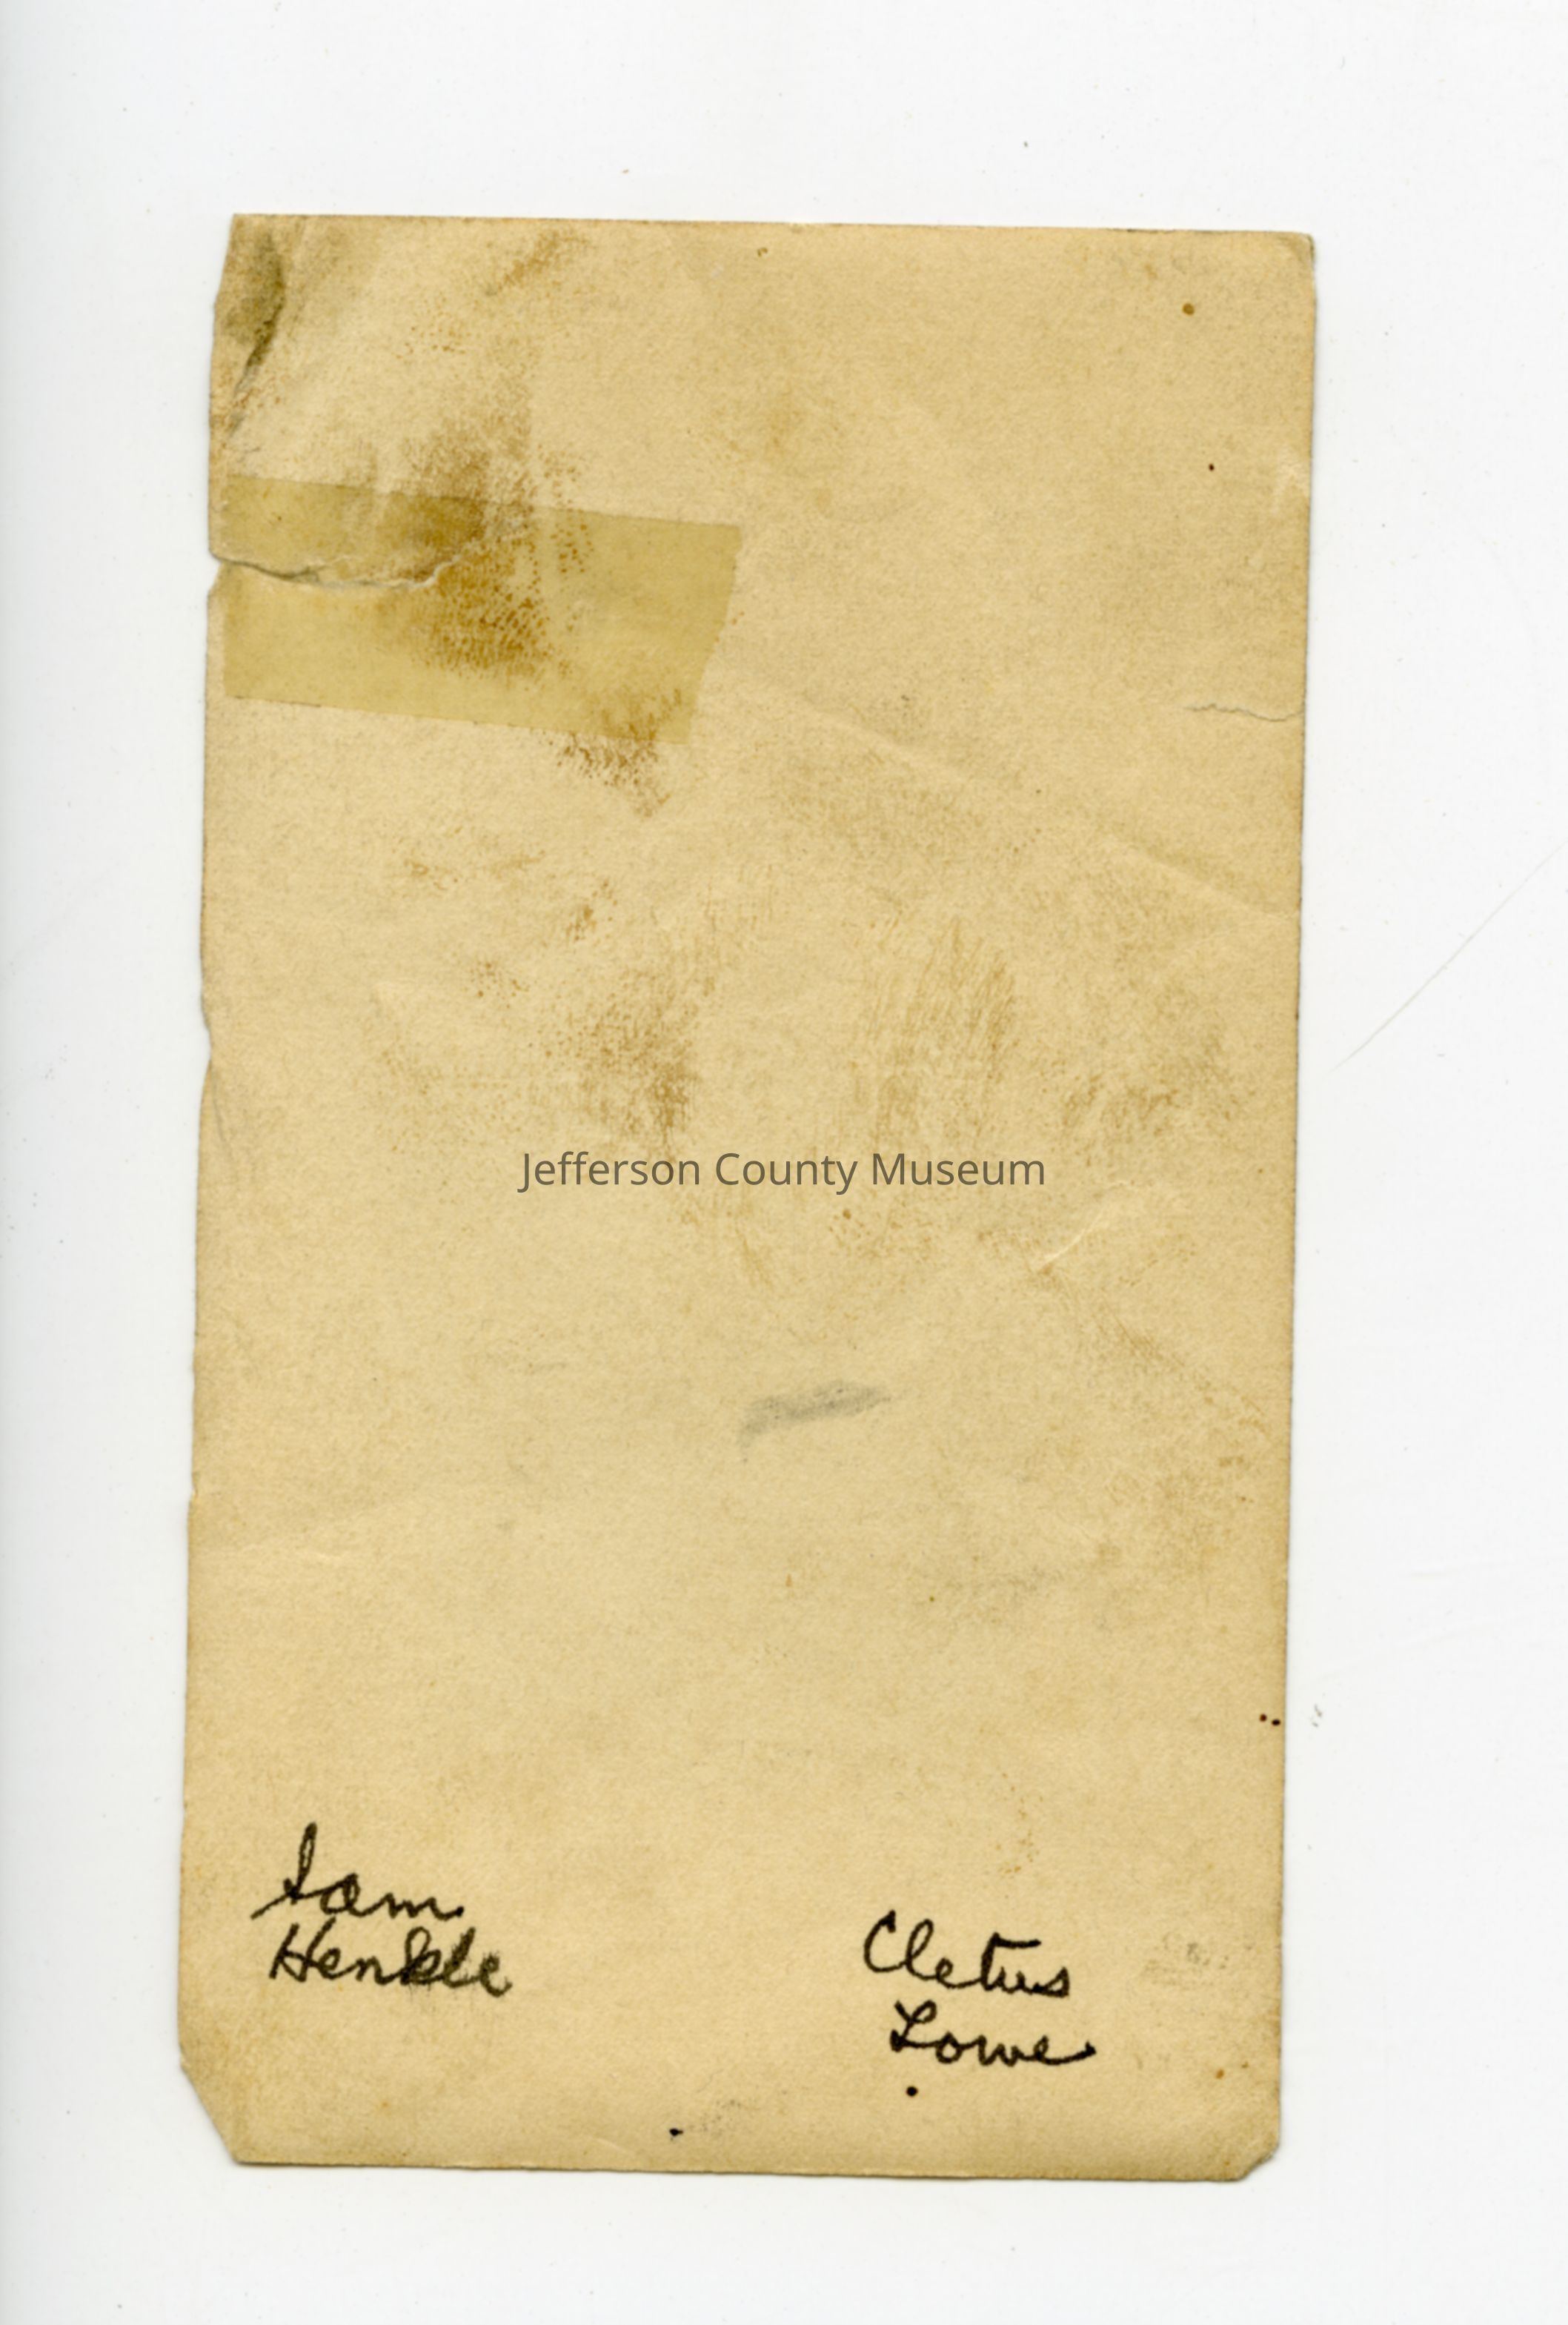 Jefferson County Museum
Sam
Henkle
Cletus
Lowe